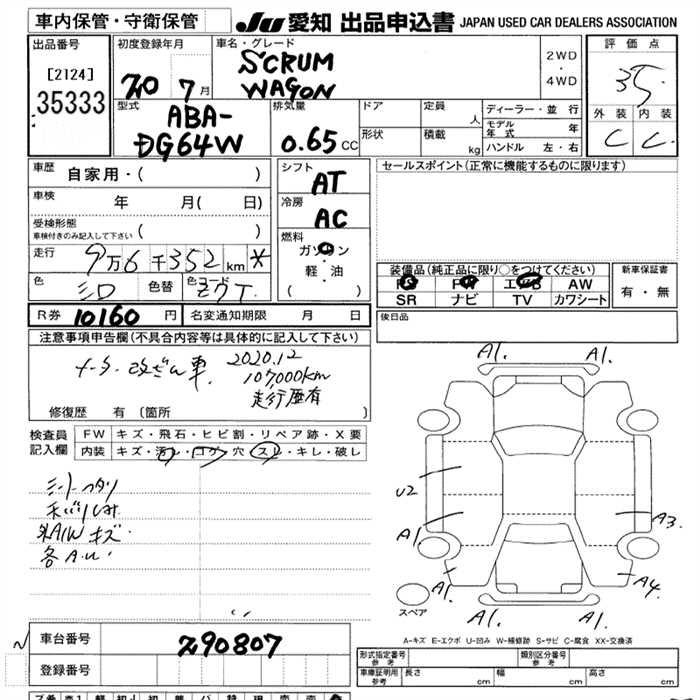 車内保管・守衛保管
JU 愛知 出品申込書 JAPAN USED CAR DEALERS ASSOCIATION
出品番号
[2124]
35333
初度登録年月
20 7月
車名・グレード
SCRUM
WAGON
2WD
・
4WD
評価点
35
外装 内装
C C
型式
ABA-
DG64W
排気量
0.65 CC
ドア
定員 人
形状
積載 kg
ディーラー・並行
モデル年式 年
ハンドル 左・右
車歴 自家用・( )
車検 年 月( 日)
受検形態
車検付きのみ記入して下さい ( )
走行 9万6千352km *
色 シロ 色替 色コード Z7T
シフト
AT
冷房
AC
燃料
ガソリン
・
軽・油
( )
セールスポイント(正常に機能するものに限ります)
装備品(純正品に限り○をつけてください)
PS PW エアB AW
SR ナビ TV カワシート
新車保証書
有・無
後日品
R券 10160 円 名変通知期限 月 日
注意事項申告欄(不具合内容等は具体的に記入して下さい)
メーター改ざん車
2020.12
107,000km
走行歴有
修復歴 有 〔箇所 〕
検査員記入欄
FW キズ・飛石・ヒビ割・リペア跡・X要
内装 キズ・汚レ・コゲ・穴・スレ・キレ・破レ
シートヘタリ
天バリしみ
外AWキズ
各A.U.
A1. A1.
U2
A1. A3.
A1. A4.
A1. A1.
スペア
A-キズ E-エクボ U-凹み W-補修跡 S-サビ C-腐食 XX-交換済
車台番号 290807
登録番号
形式指定番号 参考
類別区分番号 参考
車庫証明用 参考 長さ cm 幅 cm 高さ cm